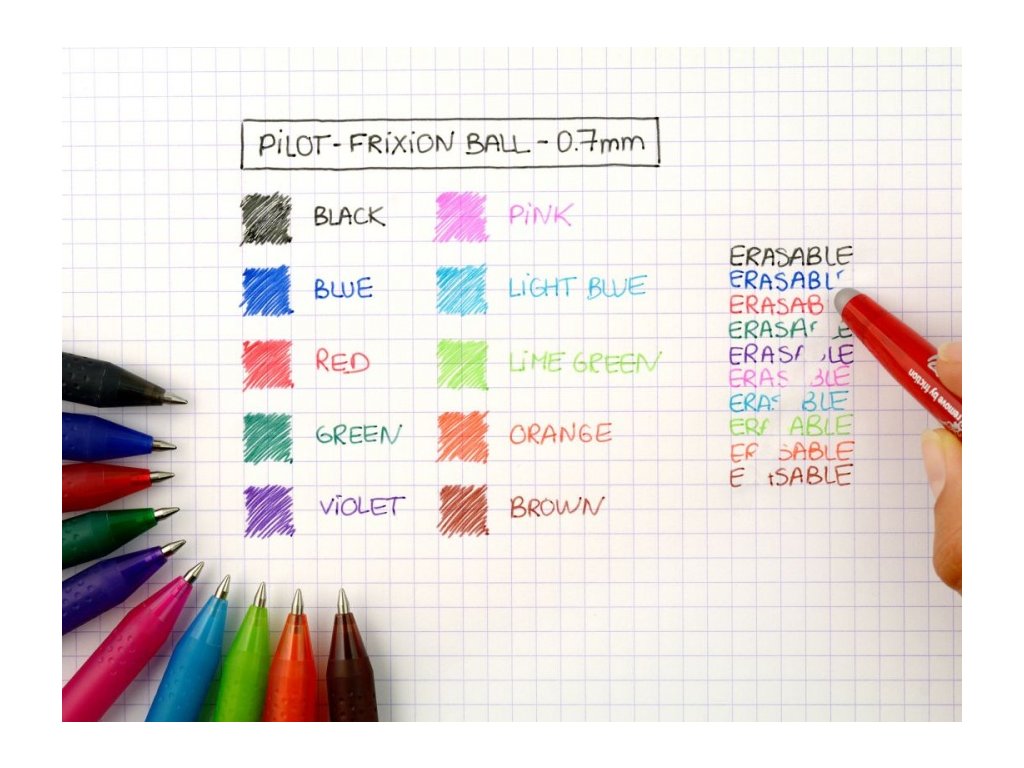 PiLOT - FRiXiON BALL - 0.7mm
BLACK
BLUE
RED
GREEN
ViOLET
PiNK
LiGHT BLUE
LiME GREEN
ORANGE
BROWN
ERASABLE
ERASABL
ERASAB
ERASA E
ERAS LE
ERAS BLE
ERA BLE
ER ABLE
ER SABLE
E SABLE
remove by friction